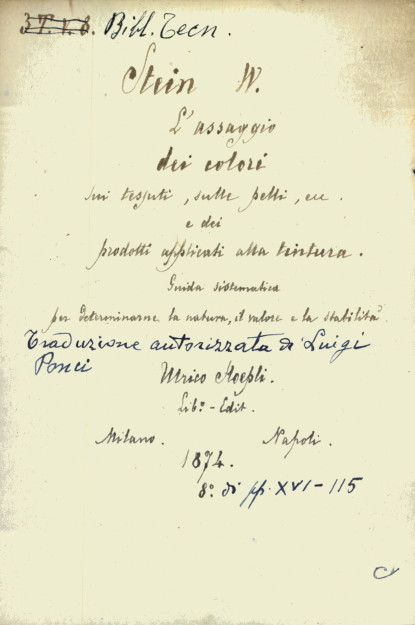 3T.1.8. Bibl. Tecn.
Stein W.
L'assaggio
dei colori
sui tessuti, sulle pelli, ecc.
e dei
prodotti applicati alla tintura.
Guida sistematica
per determinarne la natura, il valore e la stabilità
Traduzione autorizzata di Luigi
Ponci
Ulrico Hoepli.
Lib.º - Edit.
Milano. Napoli.
1874.
8.º di pp. XVI - 115